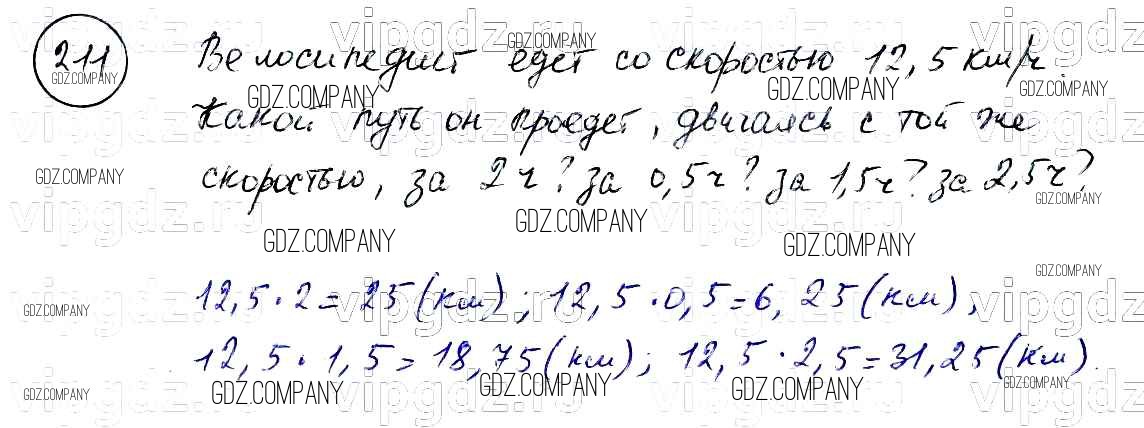 211 Велосипедист едет со скоростью 12,5 км/ч.
Какой путь он проедет, двигаясь с той же
скоростью, за 2 ч? за 0,5 ч? за 1,5 ч? за 2,5 ч?
12,5 · 2 = 25 (км); 12,5 · 0,5 = 6,25 (км),
12,5 · 1,5 = 18,75 (км); 12,5 · 2,5 = 31,25 (км).